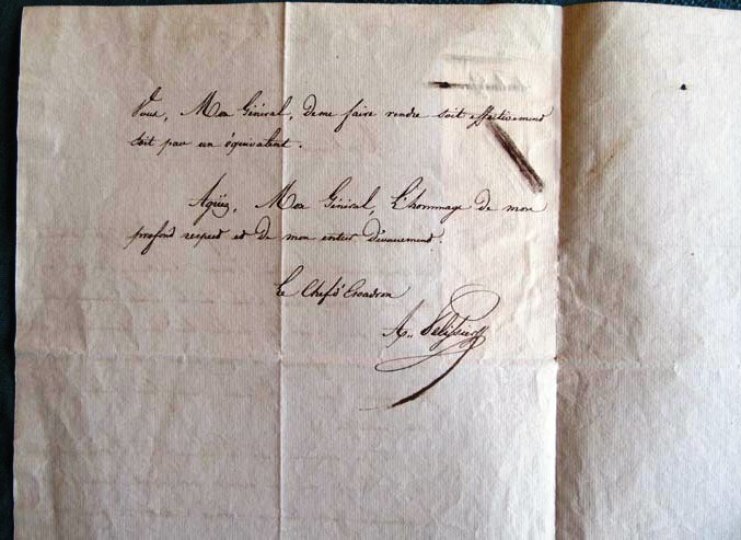 Vous, Mon Général, de me faire rendre soit effectivement
soit par un équivalent.
Agréez, Mon Général, L'hommage de mon
profond respect et de mon entier dévouement.
Le Chef d'Escadron
A.